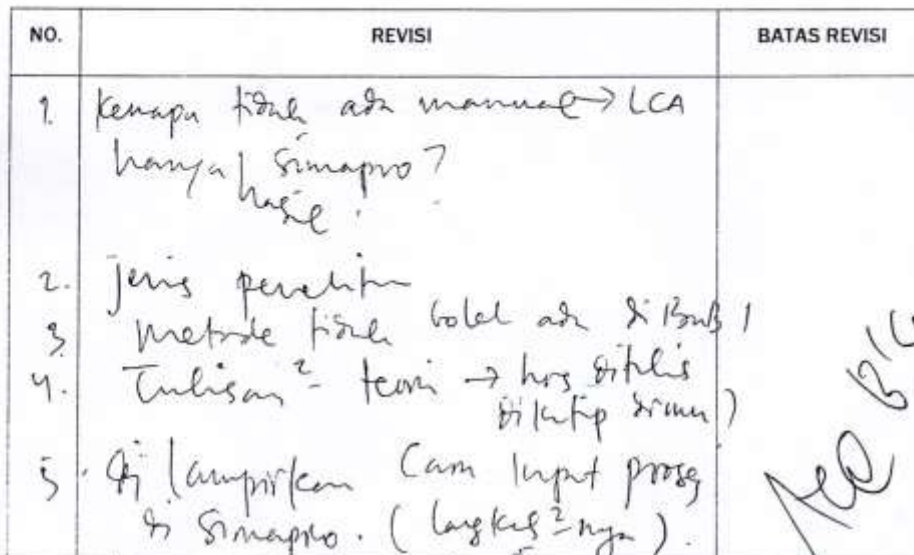 NO. REVISI BATAS REVISI
1. Kenapa tidak ada manual → LCA
hanya Simapro?
hasil
2. Jenis penelitian
3. Metode tidak boleh ada di Bab 1
4. Tulisan² teori → hrs ditulis
dikutip dimana)
5. Di lampirkan Cara Input proses
di Simapro. (langkah²-nya).
Acc